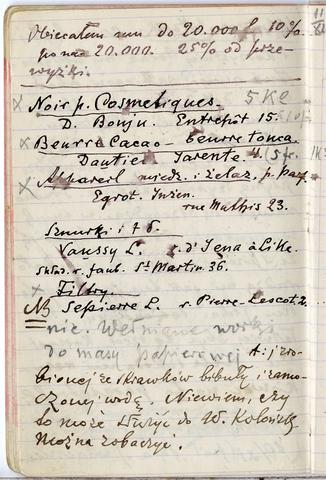 Obiecałem mu do 20.000 f 10%
ponad 20.000. 25% od prze-
wyżki.
x Noir p. Cosmetiques. 5 Kg
D. Bonju. Entrepôt 15.
x Beurre Cacao – beurre tonca.
Dautier Tarente 4. (5 fr.
x Appareil miedz. i żelaz. p. parf.
Egrot. Inżen.
rue Mathis 23.
Sznurki i t d.
Vaussy L. r. d'Jena à Lille.
Skład. r. faub. St Martin 36.
x Filtry.
NB Sepierre L. r. Pierre-Lescot 2
nic. Wełniane worki
do masy papierowej t. j. zro-
bionej ze skrawków bibuły i zamo-
czonej wodą. Niewiem, czy
to może służyć do W. Kolońsk
można zobaczyć.